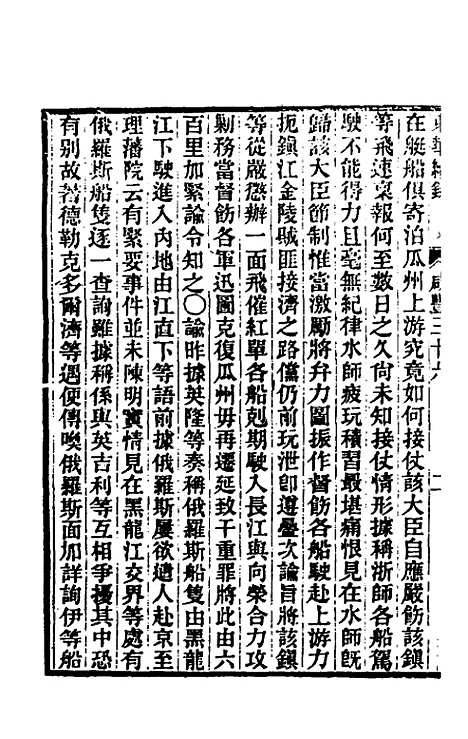 咸豐三十六 二
在艇船俱寄泊瓜州上游究竟如何接仗該大臣自應嚴飭該鎮
等飛速稟報何至數日之久尙未知接仗情形據稱浙師各船駕
駛不能得力且毫無紀律水師疲玩積習最堪痛恨見在水師旣
歸該大臣節制惟當激勵將弁力圖振作督飭各船駛赴上游力
扼鎮江金陵賊匪接濟之路儻仍前玩泄卽遵疊次諭旨將該鎮
等從嚴懲辦一面飛催紅單各船剋期駛入長江與向榮合力攻
剿務當督飭各軍迅圖克復瓜州毋再遷延致干重罪將此由六
百里加緊諭令知之〇諭昨據英隆等奏稱俄羅斯船隻由黑龍
江下駛進入內地由江直下等語前據俄羅斯屢欲遣人赴京至
理藩院云有緊要事件並未陳明實情見在黑龍江交界等處有
俄羅斯船隻逐一查詢雖據稱係與英吉利等互相爭擾其中恐
有別故著德勒克多爾濟等遇便傳喚俄羅斯面加詳詢伊等船